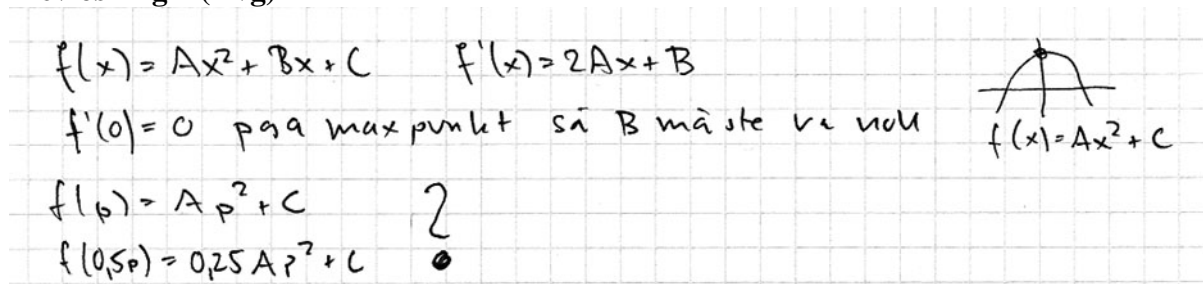 f(x) = Ax² + Bx + C f'(x) = 2Ax + B
f'(0) = 0 pga maxpunkt så B måste va noll
f(x) = Ax² + C
f(p) = Ap² + C ?
f(0,5p) = 0,25Ap² + C